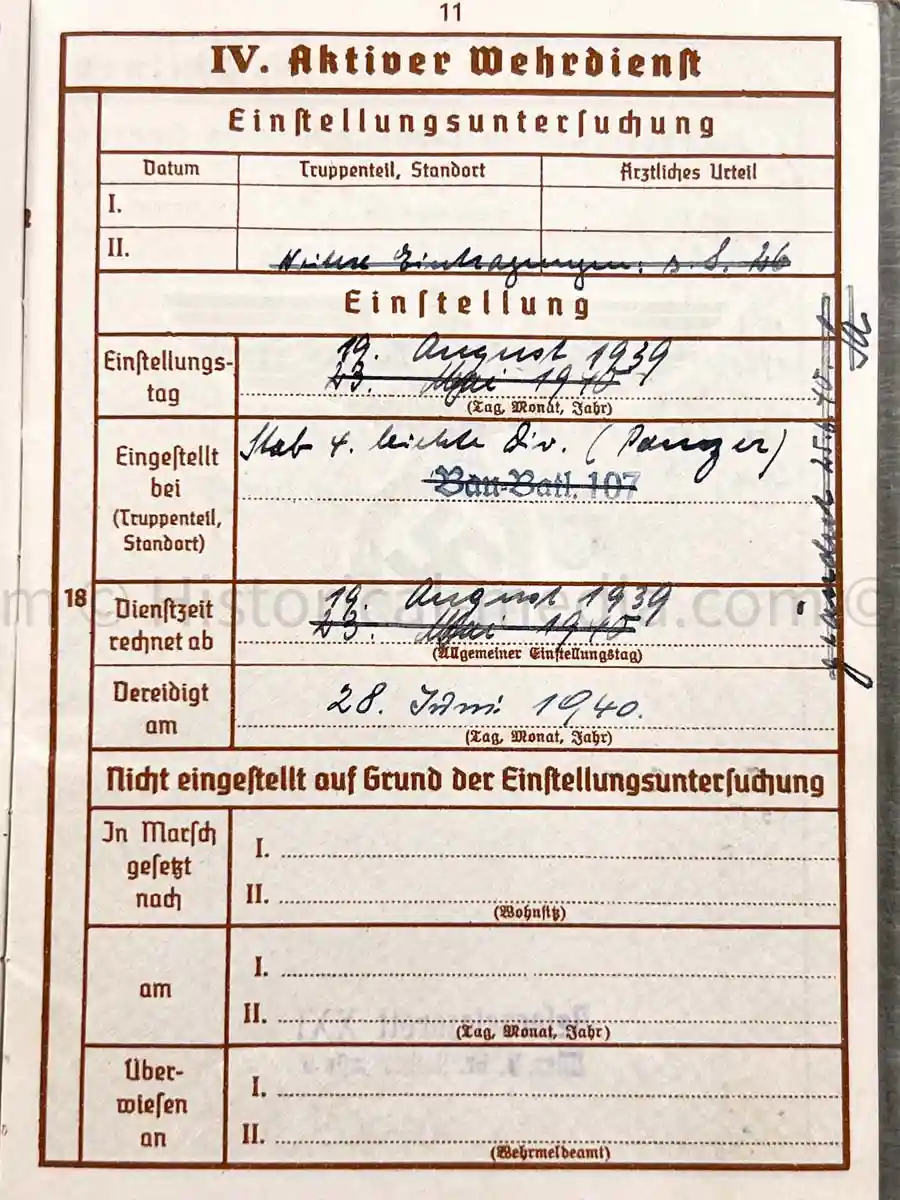 11
IV. Aktiver Wehrdienst
Einstellungsuntersuchung
Datum Truppenteil, Standort Ärztliches Urteil
I.
II. Weitere Eintragungen: s. S. 26
Einstellung
Einstellungs-
tag
19. August 1939
23. Mai 1940
(Tag, Monat, Jahr)
Eingestellt
bei
(Truppenteil,
Standort)
Stab 4. leichte Div. (Panzer)
Bau-Batl. 107
18
Dienstzeit
rechnet ab
19. August 1939
23. Mai 1940
(Allgemeiner Einstellungstag)
Vereidigt
am
28. Juni 1940.
(Tag, Monat, Jahr)
Nicht eingestellt auf Grund der Einstellungsuntersuchung
In Marsch
gesetzt
nach
I.
II.
(Wohnsitz)
am
I.
II.
(Tag, Monat, Jahr)
Über-
wiesen
an
I.
II.
(Wehrmeldeamt)